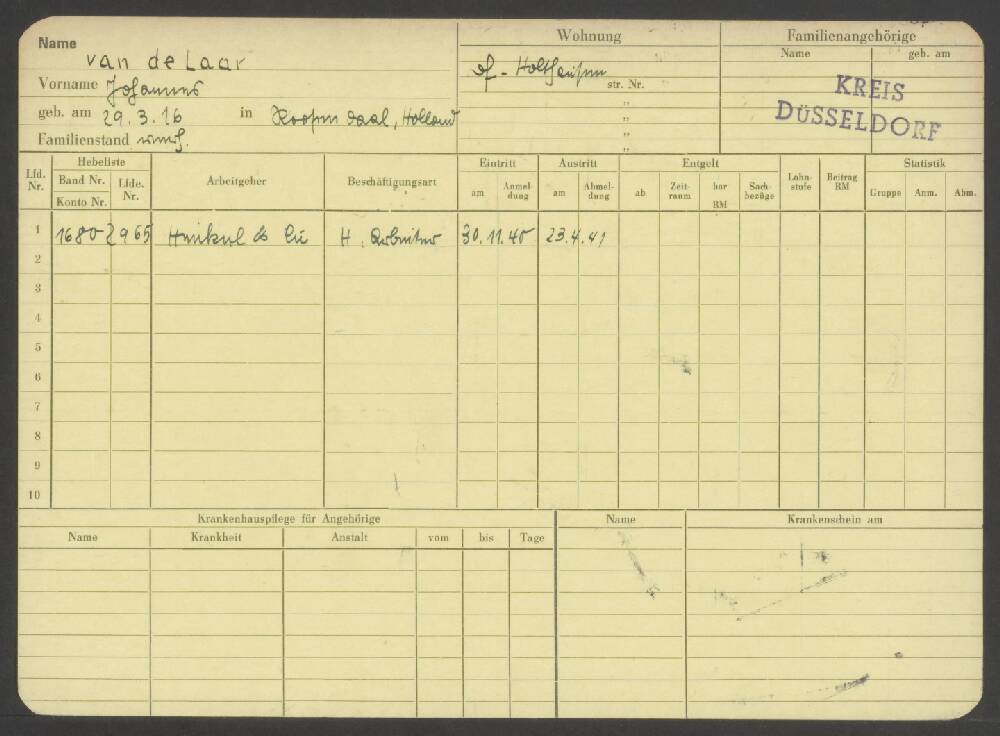 Name van de Laar
Vorname Johannes
geb. am 29.3.16 in Roosendaal, Holland
Familienstand
Wohnung
df - Holthausen
str. Nr.
"
"
"
"
Familienangehörige
Name geb. am
KREIS
DÜSSELDORF
Lfd. Nr. Hebeliste Arbeitgeber Beschäftigungsart Eintritt Austritt Entgelt Lohnstufe Beitrag RM Statistik
Band Nr. Konto Nr. Lfde. Nr. am Anmeldung am Abmeldung ab Zeitraum bar RM Sachbezüge Gruppe Anm. Abm.
1 1680 2965 Henkel & Cie H. Arbeiter 30.11.40 23.4.41
2
3
4
5
6
7
8
9
10
Krankenhauspflege für Angehörige
Name Krankheit Anstalt vom bis Tage
Name Krankenschein am